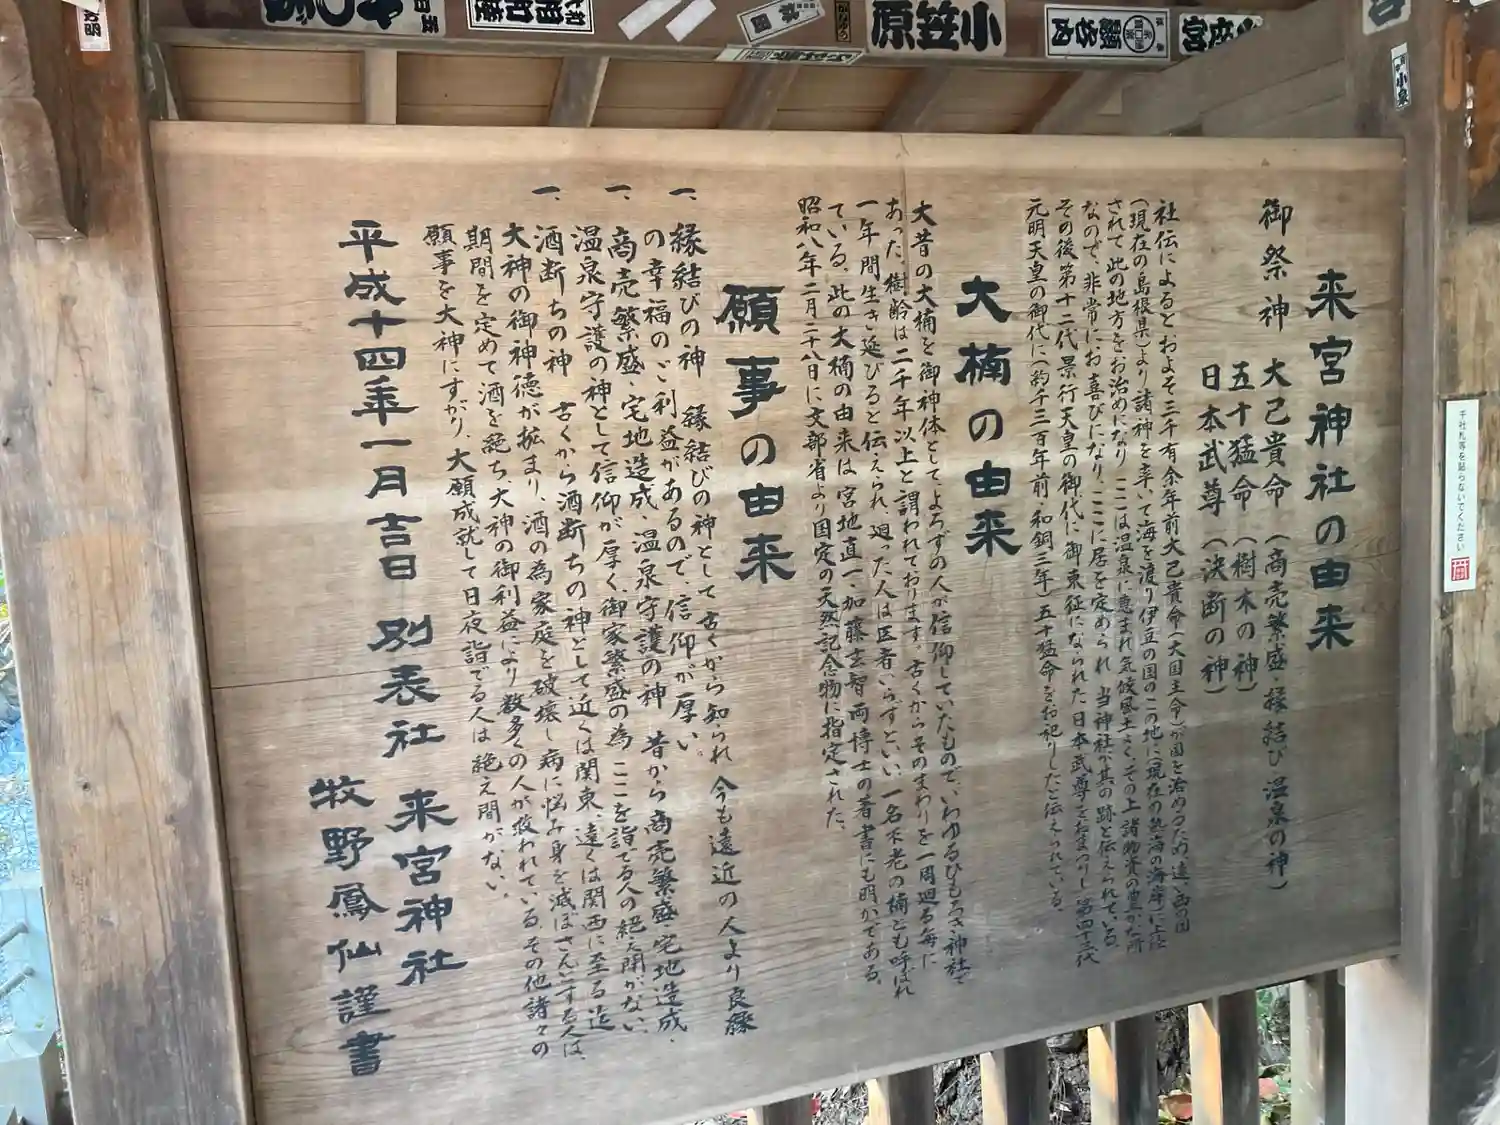 来宮神社の由来
御祭神　大己貴命（商売繁盛・縁結び 温泉の神）
五十猛命（樹木の神）
日本武尊（決断の神）
社伝によるとおよそ三千有余年前大己貴命（大国主命）が国を治めるため、遠い西の国
（現在の島根県）より諸神を率いて海を渡り伊豆の国のこの地に（現在の熱海の海岸）に上陸
されて此の地方をお治めになり ここは温泉に恵まれ気候風土よく、その上諸物資の豊かな所
なので、非常にお喜びになり、ここに居を定められ 当神社が其の跡と伝えられている。
その後第十二代景行天皇の御代に御東征になられた日本武尊をおまつりし 第四十三代
元明天皇の御代に（約千三百年前・和銅三年）五十猛命をお祀りしたと伝えられている。
大楠の由来
大昔の大楠を御神体として、よろずの人が信仰していたもので、いわゆるひもろぎ神社で
あった。樹齢は二千年以上と謂われております。古くからそのまわりを一周廻る毎に
一年間生き延びると伝えられ、廻った人は医者いらずといい、一名不老の楠とも呼ばれ
ている。此の大楠の由来は宮地直一、加藤玄智両博士の著書にも明かである。
昭和八年二月二十八日に文部省より国定の天然記念物に指定された。
願事の由来
一、縁結びの神　縁結びの神として古くから知られ 今も遠近の人より良縁
の幸福のご利益があるので、信仰が厚い。
一、商売繁盛・宅地造成、温泉守護の神　昔から商売繁盛・宅地造成・
温泉守護の神として信仰が厚く、御家繁盛の為 ここを詣でる人の絶え間がない、
一、酒断ちの神　古くから酒断ちの神として近くは関東、遠くは関西に至る迄
大神の御神徳が拡まり、酒の為家庭を破壊し 病に悩み身を滅ぼさんとする人は、
期間を定めて酒を絶ち、大神の御利益により数多くの人が救われている。その他諸々の
願事を大神にすがり、大願成就して日夜詣でる人は絶え間がない。
平成十四年一月吉日　別表社 来宮神社
牧野鳳仙謹書
小笠原
小泉
千社札等を貼らないでください